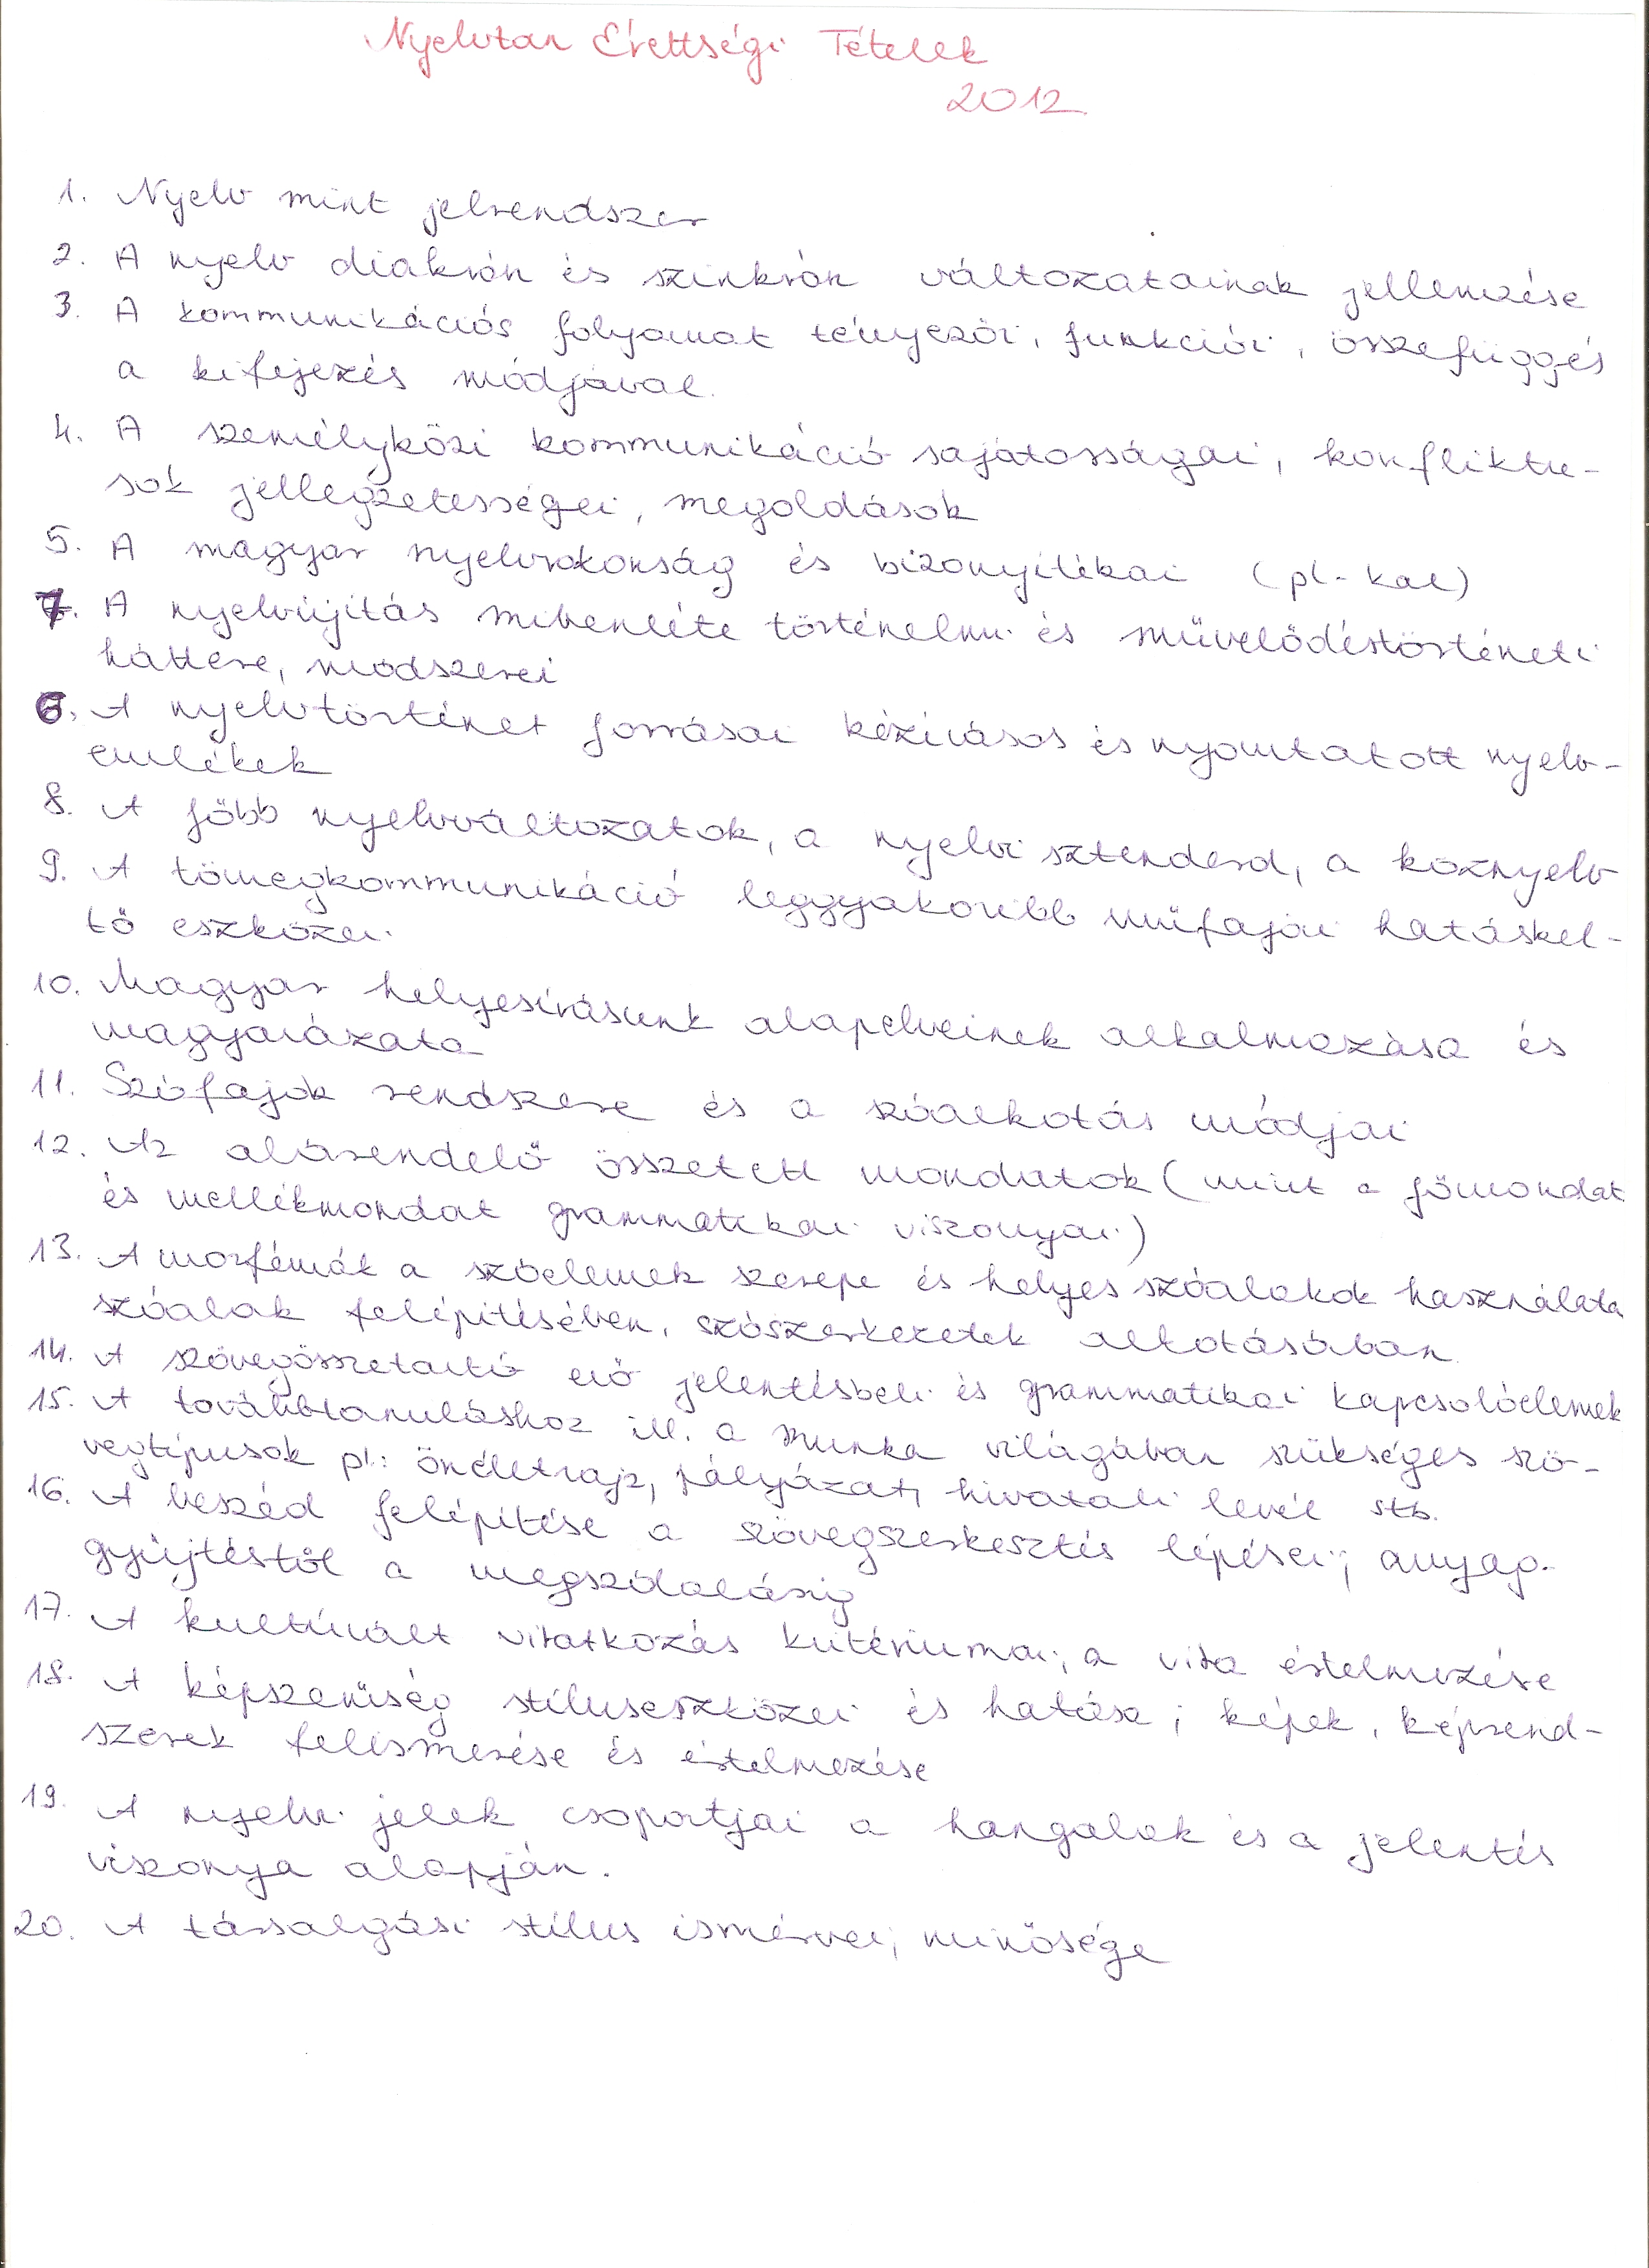 Nyelvtan Érettségi Tételek
2012
1. Nyelv mint jelrendszer
2. A nyelv diakrón és szinkrón változatainak jellemzése
3. A kommunikációs folyamat tényezői, funkciói, összefüggés
a kifejezés módjával.
4. A személyközi kommunikáció sajátosságai, konfliktu-
sok jellegzetességei, megoldások
5. A magyar nyelvrokonság és bizonyítékai (pl- kal)
7. A nyelvújítás mibenléte történelmi és művelődéstörténeti
háttere, módszerei
6. A nyelvtörténet forrásai kézírásos és nyomtatott nyelv-
emlékek
8. A főbb nyelvváltozatok, a nyelvi sztenderd, a köznyelv
9. A tömegkommunikáció leggyakoribb műfajai hatáskel-
tő eszközei
10. Magyar helyesírásunk alapelveinek alkalmazása és
magyarázata
11. Szófajok rendszere és a szóalkotás módjai
12. Az alárendelő összetett mondatok (mint a főmondat
és mellékmondat grammatikai viszonyai)
13. A morfémák a szóelemek szerepe és helyes szóalakok használata
szóalak felépítésében, szószerkezetek alkotásában
14. A szövegösszetartó erő jelentésbeli és grammatikai kapcsolóelemek
15. A továbbtanuláshoz ill. a munka világában szükséges szö-
vegtípusok pl: önéletrajz, pályázat, hivatali levél stb.
16. A beszéd felépítése a szövegszerkesztés lépései; anyag-
gyűjtéstől a megszólalásig
17. A kultúrált vitatkozás kritériumai; a vita értelmezése
18. A képszerűség stíluseszközei és hatása; képek, képrend-
szerek felismerése és értelmezése
19. A nyelvi jelek csoportjai a hangalak és a jelentés
viszonya alapján.
20. A társalgási stílus ismérvei; minősége